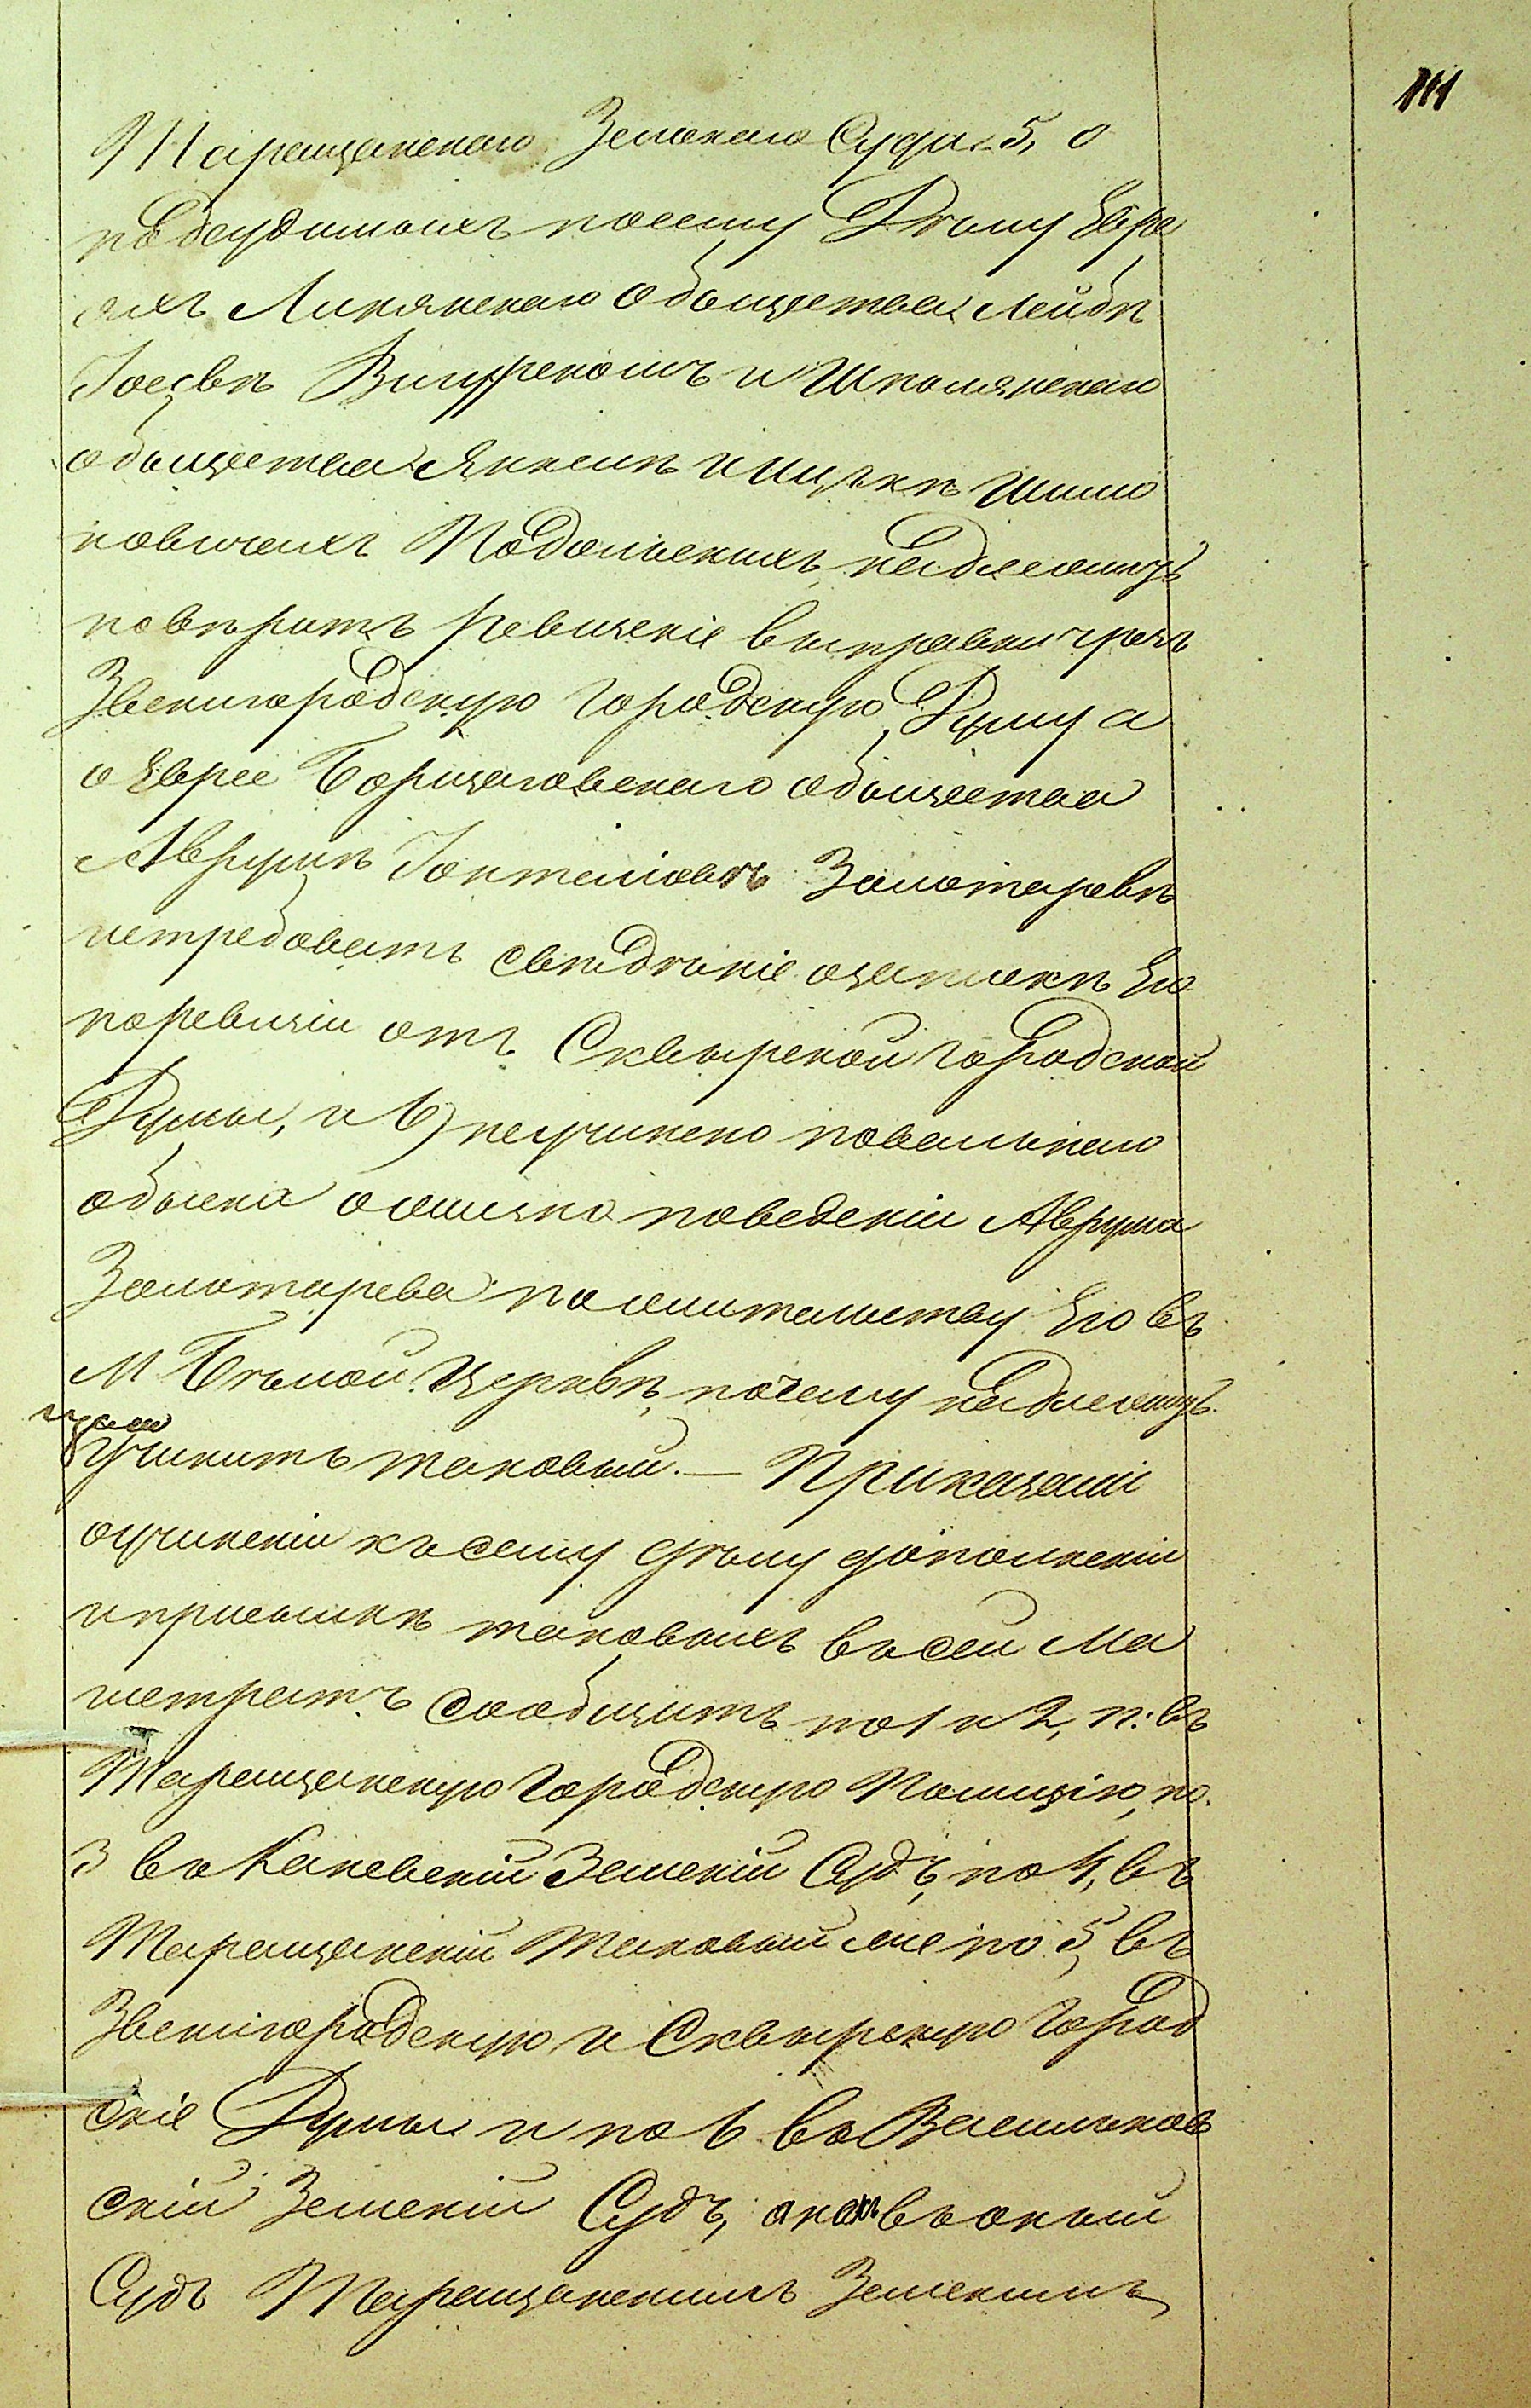 111
Таращанскаго Земскаго Суда 5, о
подсудимыхъ посему Дѣлу Евре
яхъ Лисянскаго общества Лейбѣ
Іосевѣ Винурскомъ и Шполянскаго
общества Янкелѣ и Ицькѣ Шимо
новичахъ Подольскихъ, надлежитъ
повѣрить ревизскіе выправки чрезъ
Звенигородскую Городскую Думу а
о Еврее Борщаговскаго общества
Аврумѣ Іонтелiовѣ Золотаревѣ
истребовать свѣдѣніе озапискѣ Его
поревизіи отъ Сквырской Городской
Думы, и 6) неучинено повальнаго
обыска ожизни поведеніи Аврума
Золотарева пожительству Его въ
М Бѣлой Церквѣ, почему надлежитъ
учинить таковый. — Приказали
оучиненіи къ сему дѣлу дополненіи
иприсылкѣ таковыхъ въ сей Ма
гистратъ сообщить по 1 и 2, п: въ
Таращанскую Городскую Полицію, по
3 въ Каневскій Земскій Судъ, по 4, въ
Таращанскій таковый же по 5, въ
Звенигородскую и Сквырскую Город
скіе Думы и по 6 въ Васильков
скій Земскій Судъ, въ оный
Судъ Таращанскимъ Земскимъ